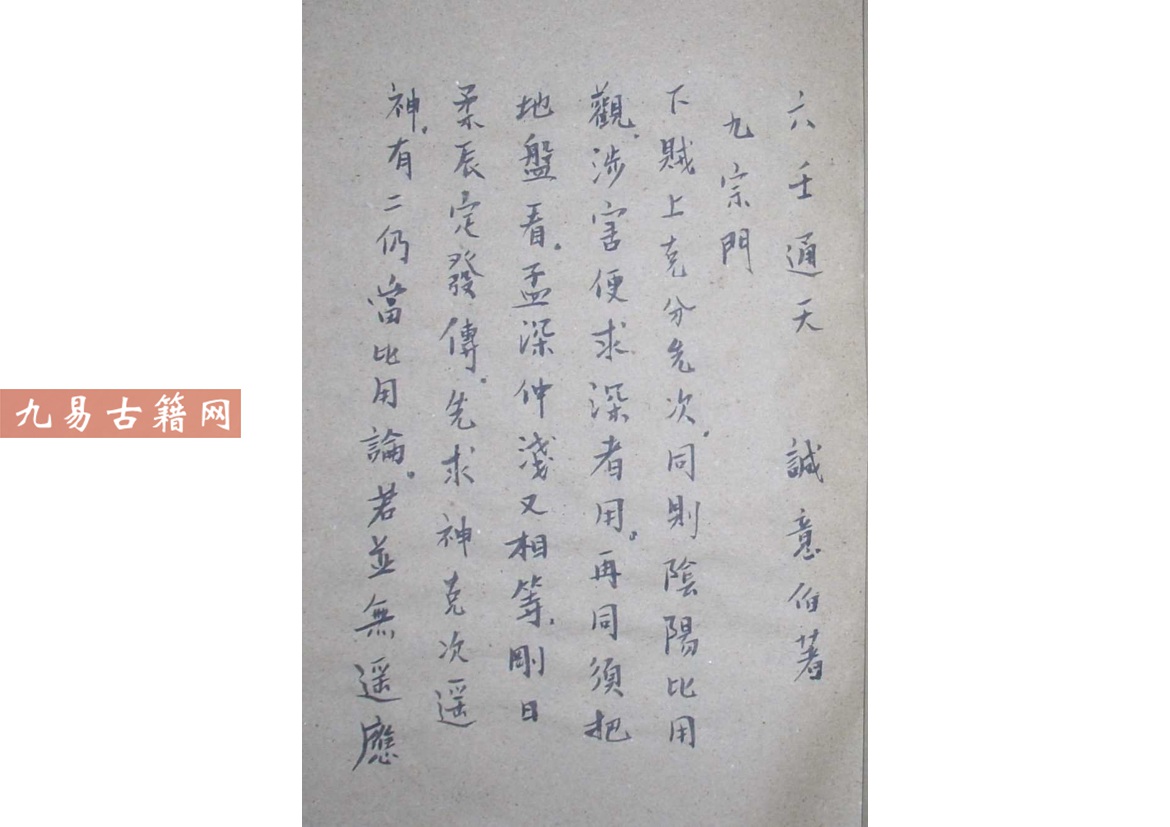 六壬通天 誠意伯著
九宗門
下賊上克分先次。同則陰陽比用
觀。涉害便求深者用。再同須把
地盤看。孟深仲淺又相等。剛日
柔辰定發傳。先求神克次遥
神。有二仍當比用論。若並無遥應
九易古籍网